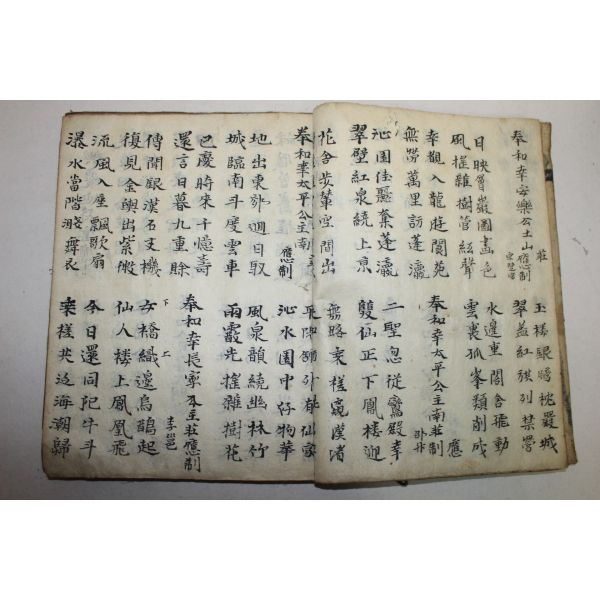 奉和幸安樂公主山莊應制 宗楚客
玉樓銀牓枕嚴城
翠盖紅旂列禁營
日映層巖圖畫色
風搖雜樹管絃聲
水邊重閣含飛動
雲裏孤峯類削成
幸觀八龍遊閬苑
無勞萬里訪蓬瀛
奉和幸太平公主南莊應制 邵升
沁園佳麗奪蓬瀛
翠壁紅泉繞上京
二聖忽從鸞殿幸
雙仙正下鳳樓迎
花含步輦空間出
無路乘槎窺漢渚
奉和幸太平公主南應制
平陽館外有仙家
沁水園中好物華
地出東郊迴日馭
城臨南斗度雲車
風泉韻繞幽林竹
雨霰光搖雜樹花
已慶時來千億壽
還言日暮九重賖
奉和幸長寧公主莊應制 李邕
傳聞銀漢石支機
復見金輿出紫微
女橋織邊烏鵲起 下 上
仙人樓上鳳凰飛
流風入座飄歌扇
瀑水當階濺舞衣
今日還同犯牛斗
乘槎共泛海潮歸